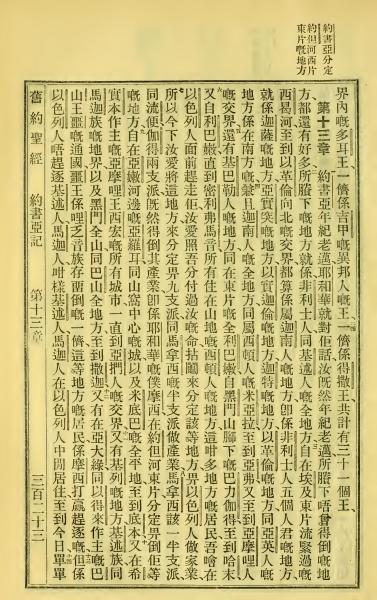 約書亞分定
約但河西片
東片嘅地方
界內嘅多耳王一儕係吉甲嘅異邦人嘅王一儕係得撒王共計有三十一個王
第十三章 約書亞年紀老邁耶和華就對佢話汝既然年紀老邁所賸下唔曾得倒嘅地
方都還有好多所賸下嘅地方就係非利士人同基述人嘅全地方自在埃及東片流緊過嘅
西曷河至到以革倫向北嘅交界都算係屬迦南人嘅地方卽係非利士人五個人君嘅地方
就係迦薩嘅地方亞實突嘅地方以實迦倫嘅地方迦特嘅地方以革倫嘅地方同亞英人嘅
地方係在南方嘅兼且迦南人嘅全地方同屬西頓人嘅米亞拉至到亞弗又至到亞摩哩人
嘅交界還有基巴勒人嘅地方同在東片嘅全利巴嫩自黑門山腳下嘅巴力伽得至到哈末
又自利巴嫩直到密利弗馬音所有住在山地嘅西頓人嘅地方這咁多地方嘅居民吾會在
以色列人面前趕走佢汝愛照吾分付過汝嘅命拈鬮來分定該等地方畀以色列人做家業
所以今下汝愛將這地方來分定畀九支派同馬拿西嘅半支派做產業馬拿西該一半支派
同流便伽得兩支派旣然得倒其產業卽係耶和華嘅僕摩西在約但河東片分定畀倒佢等
嘅地方自在亞嫩河邊嘅亞羅耳同山窩中心嘅城以及米底巴嘅全平地至到底本又在希
實本作主嘅亞摩哩王西宏嘅所有城市一直到亞捫人嘅交界又有基列嘅地方基述族同
馬迦族嘅地界以及黑門全山同巴山全地方至到撒迦又有在亞大綠同以得來作主嘅巴
山王噩嘅通國噩王係哩乏音族存畱倒嘅一儕這等地方嘅居民係摩西打贏趕逐嘅但係
以色列人唔趕逐基述人馬迦人咁樣基述人馬迦人在以色列人中間居住至到今日單單
舊約聖經 約書亞記 第十三章 三百二十三